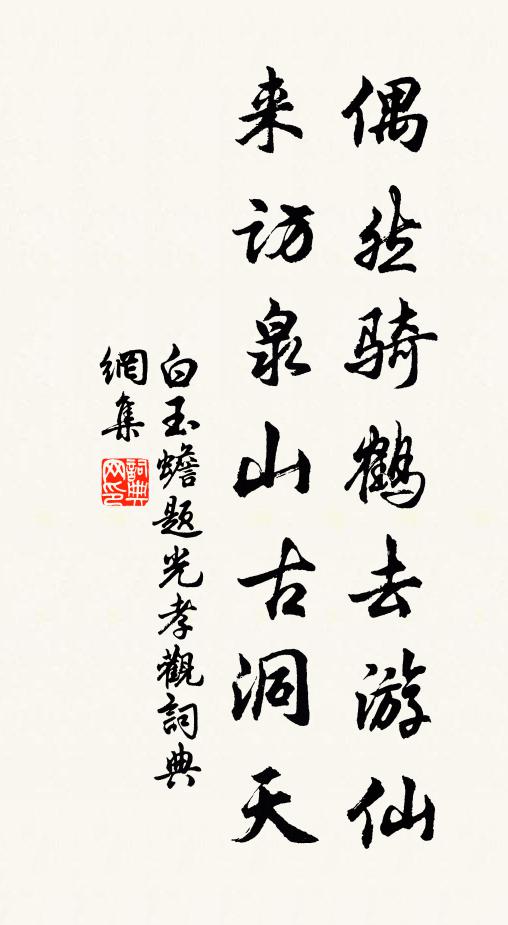 偶然骑鹤去游仙
来访泉山古洞天
白玉蟾题光孝觀詞典
網集
詞典网印